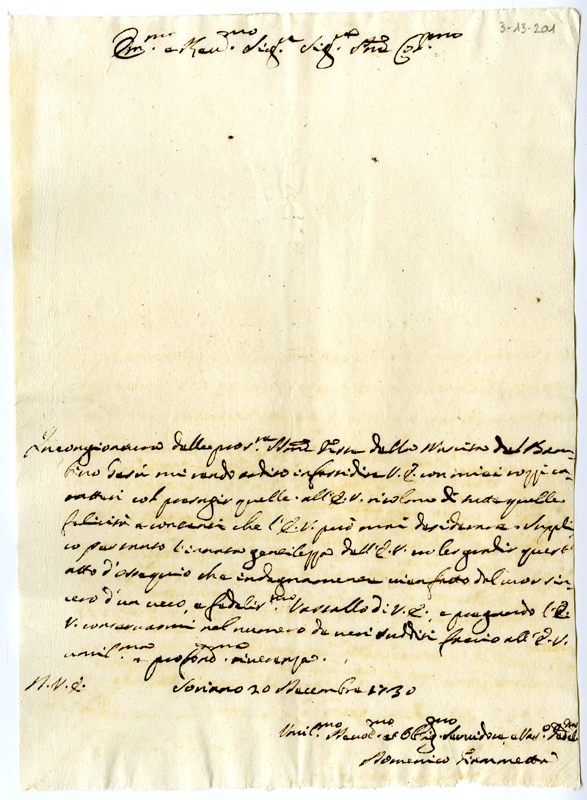 3-13-201
Em.mo e Rev.mo Sig.r Sig.r P̄ne Col.mo
In congiontura delle pros.me Ste feste della Nascita del Bam-
bino Gesù mi rendo ardito infastidire V.E. con miei rozzi ca-
ratteri col presagir quelle all'E.V. ricolme di tutte quelle
felicità e contenti che l'E.V. può mai desiderare. Suppli-
co per tanto l'innata gentilezza dell'E.V. in les gradir quest'
atto d'ossequio che indegnamente vien fatto dal cuor sin-
cero d'un vero, e fedeliss.mo Vassallo di V.E., e pregando l'E.
V. conservarmi nel numero de veri sudditi faccio all'E.V.
umil.ma e profond.ma riverenza.
D.V.E. Soriano 20 Decembre 1730
Umil.mo Devot.mo et Obblig.mo Servidore, e Vas.o Fedel.mo
Domenico